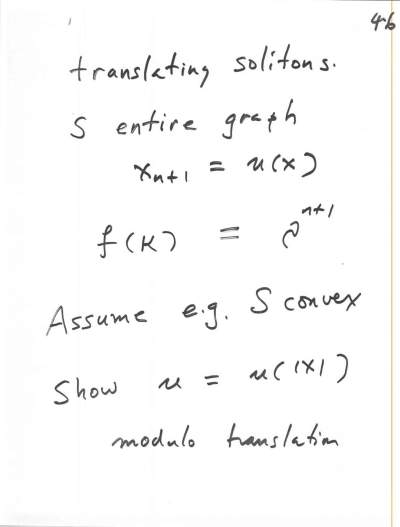 46
translating solitons.
S entire graph
x_{n+1} = u(x)
f(K) = ν^{n+1}
Assume e.g. S convex
Show u = u(|x|)
modulo translation